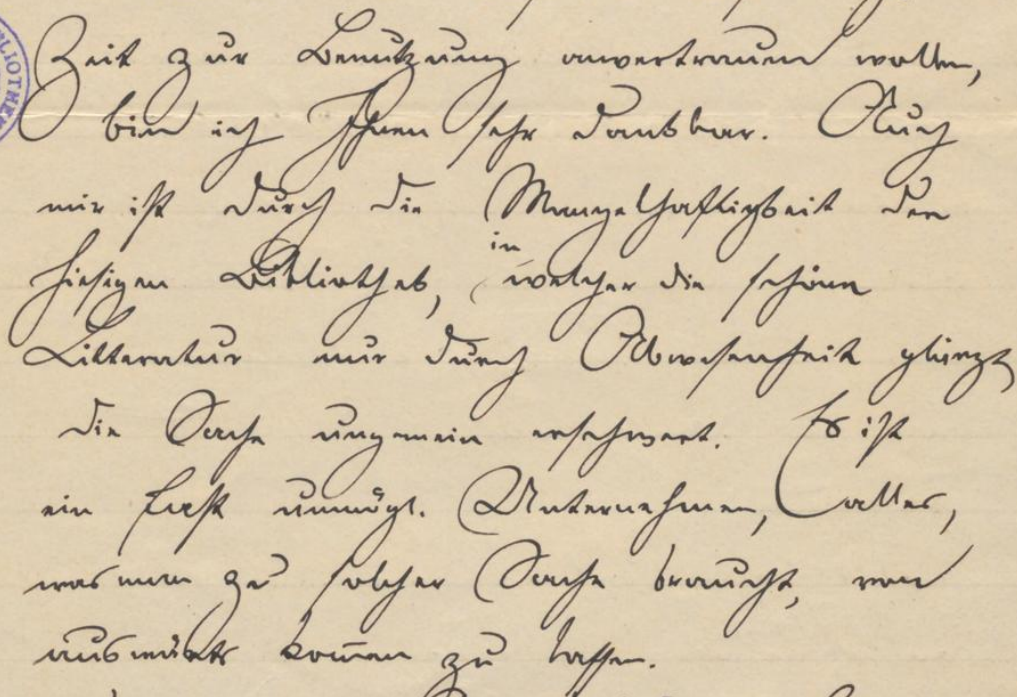 Zeit zur Benutzung anvertrauen wollen,
bin ich Ihnen sehr dankbar. Auch
mir ist durch die Mangelhaftigkeit der
hiesigen Bibliothek, in welcher die schöne
Litteratur nur durch Abwesenheit glänzt
die Sache ungemein erschwert. Es ist
ein fast unmögl. Unternehmen, alles,
was man zu solcher Sache braucht, von
auswärts kom̅en zu lassen.